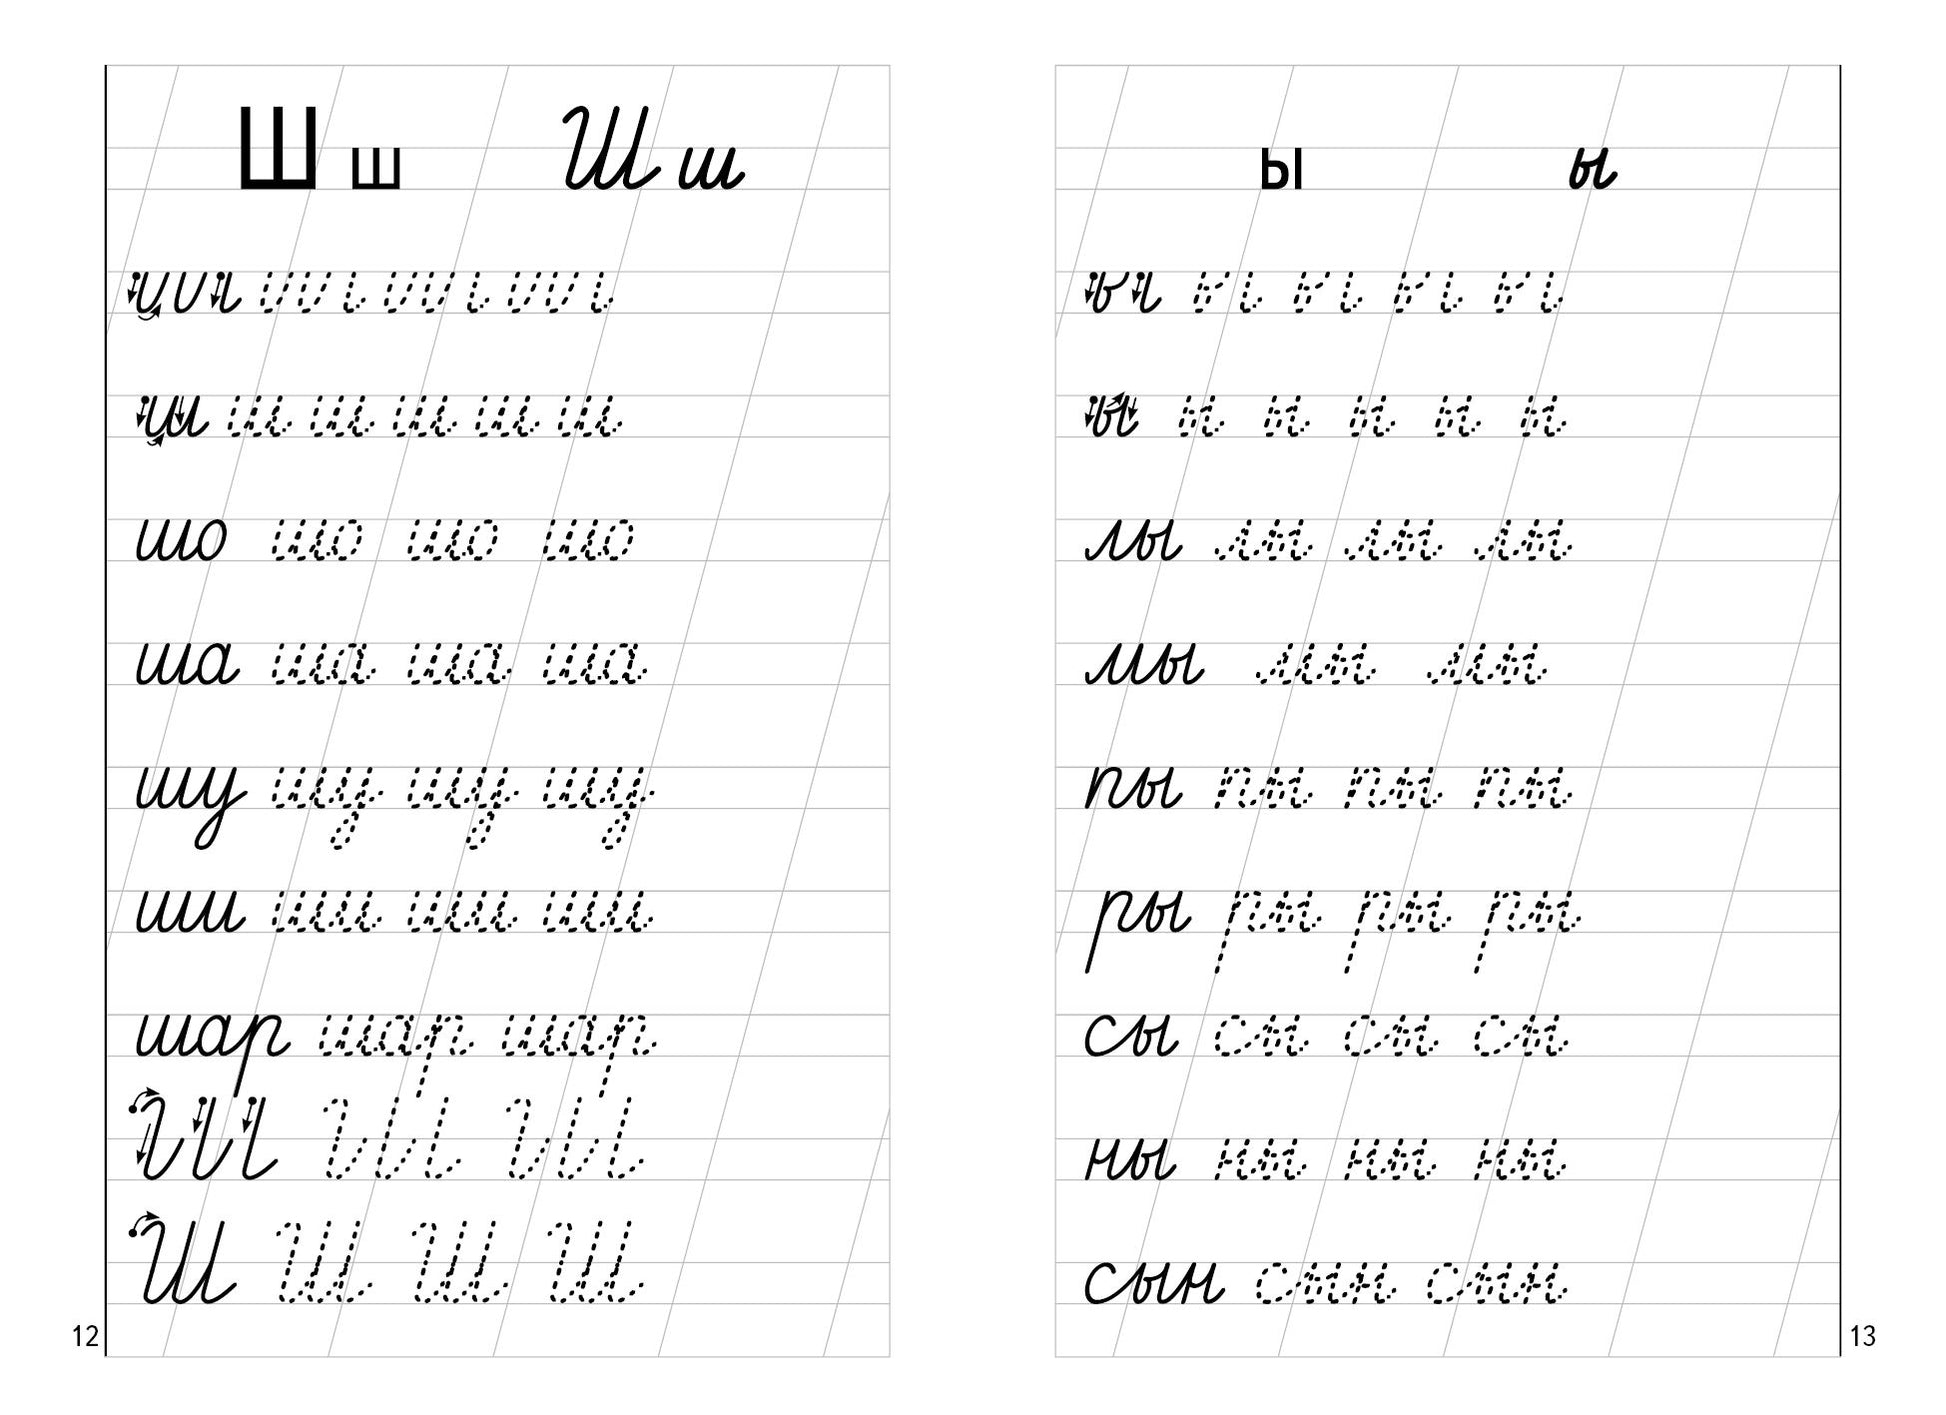 Ш ш Ш ш
ш ш ш ш ш ш
шо шо шо шо
ша ша ша ша
шу шу шу шу
ши ши ши ши
шар шар шар
Ш Ш Ш Ш
12
ы ы
ы ы ы ы ы ы
лы лы лы лы
мы мы мы
пы пы пы пы
ры ры ры ры
сы сы сы сы
ны ны ны ны
сын сын сын
13